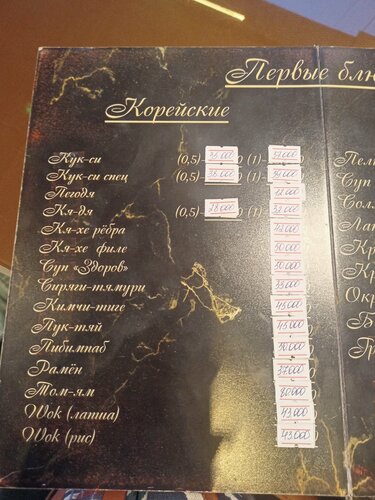 Первые блю
Корейские
Кук-си (0,5)-35 000 (1)-
Кук-си спец (0,5) 38 000 (1)-
Пегодя
Кя-дя (0,5) 28 000 (1)-32 000
Кя-хе рёбра
Кя-хе филе 50 000
Суп «Здоров» 30 000
Сиряги-тямури 33 000
Кимчи-тиге 45 000
Пук-тяй 45 000
Пибимпаб
Рамён 37 000
Том-ям 80 000
Wok (лапша) 43 000
Wok (рис) 43 000
Пель
Суп
Сол
Лап
Кр
Кр
Окр
Б
Гр